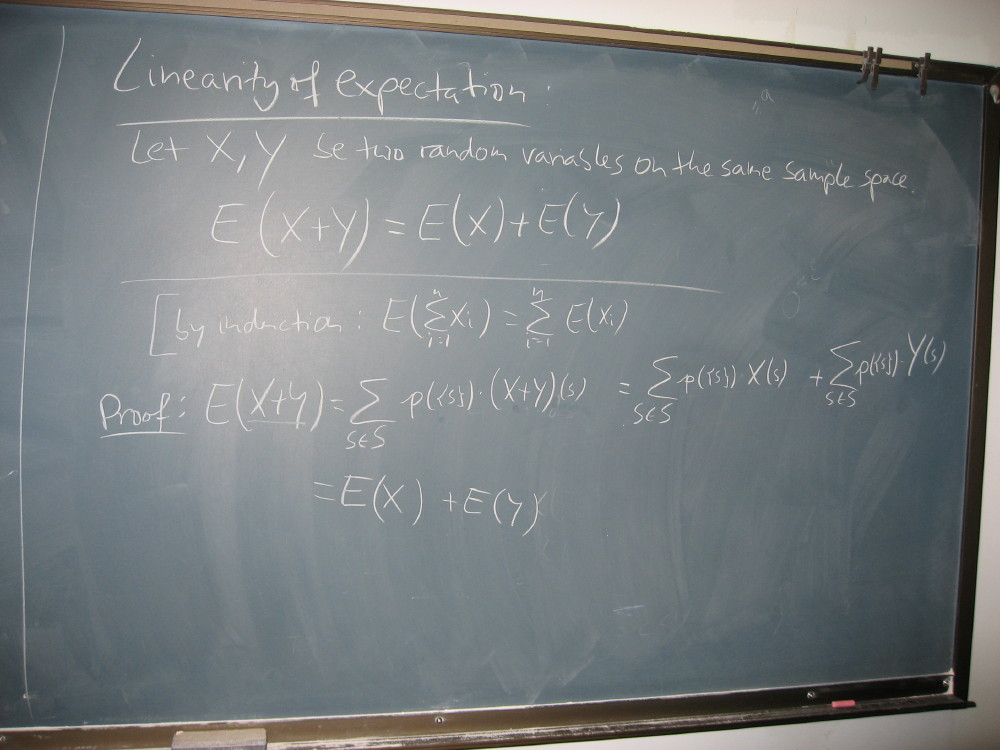 Linearity of expectation:
Let X, Y be two random variables on the same sample space.
E(X+Y) = E(X) + E(Y)
[by induction: E(∑ᵢ₌₁ⁿ Xᵢ) = ∑ᵢ₌₁ⁿ E(Xᵢ)
Proof: E(X+Y) = ∑_{s∈S} p({s})·(X+Y)(s) = ∑_{s∈S} p({s}) X(s) + ∑_{s∈S} p({s})·Y(s)
= E(X) + E(Y)